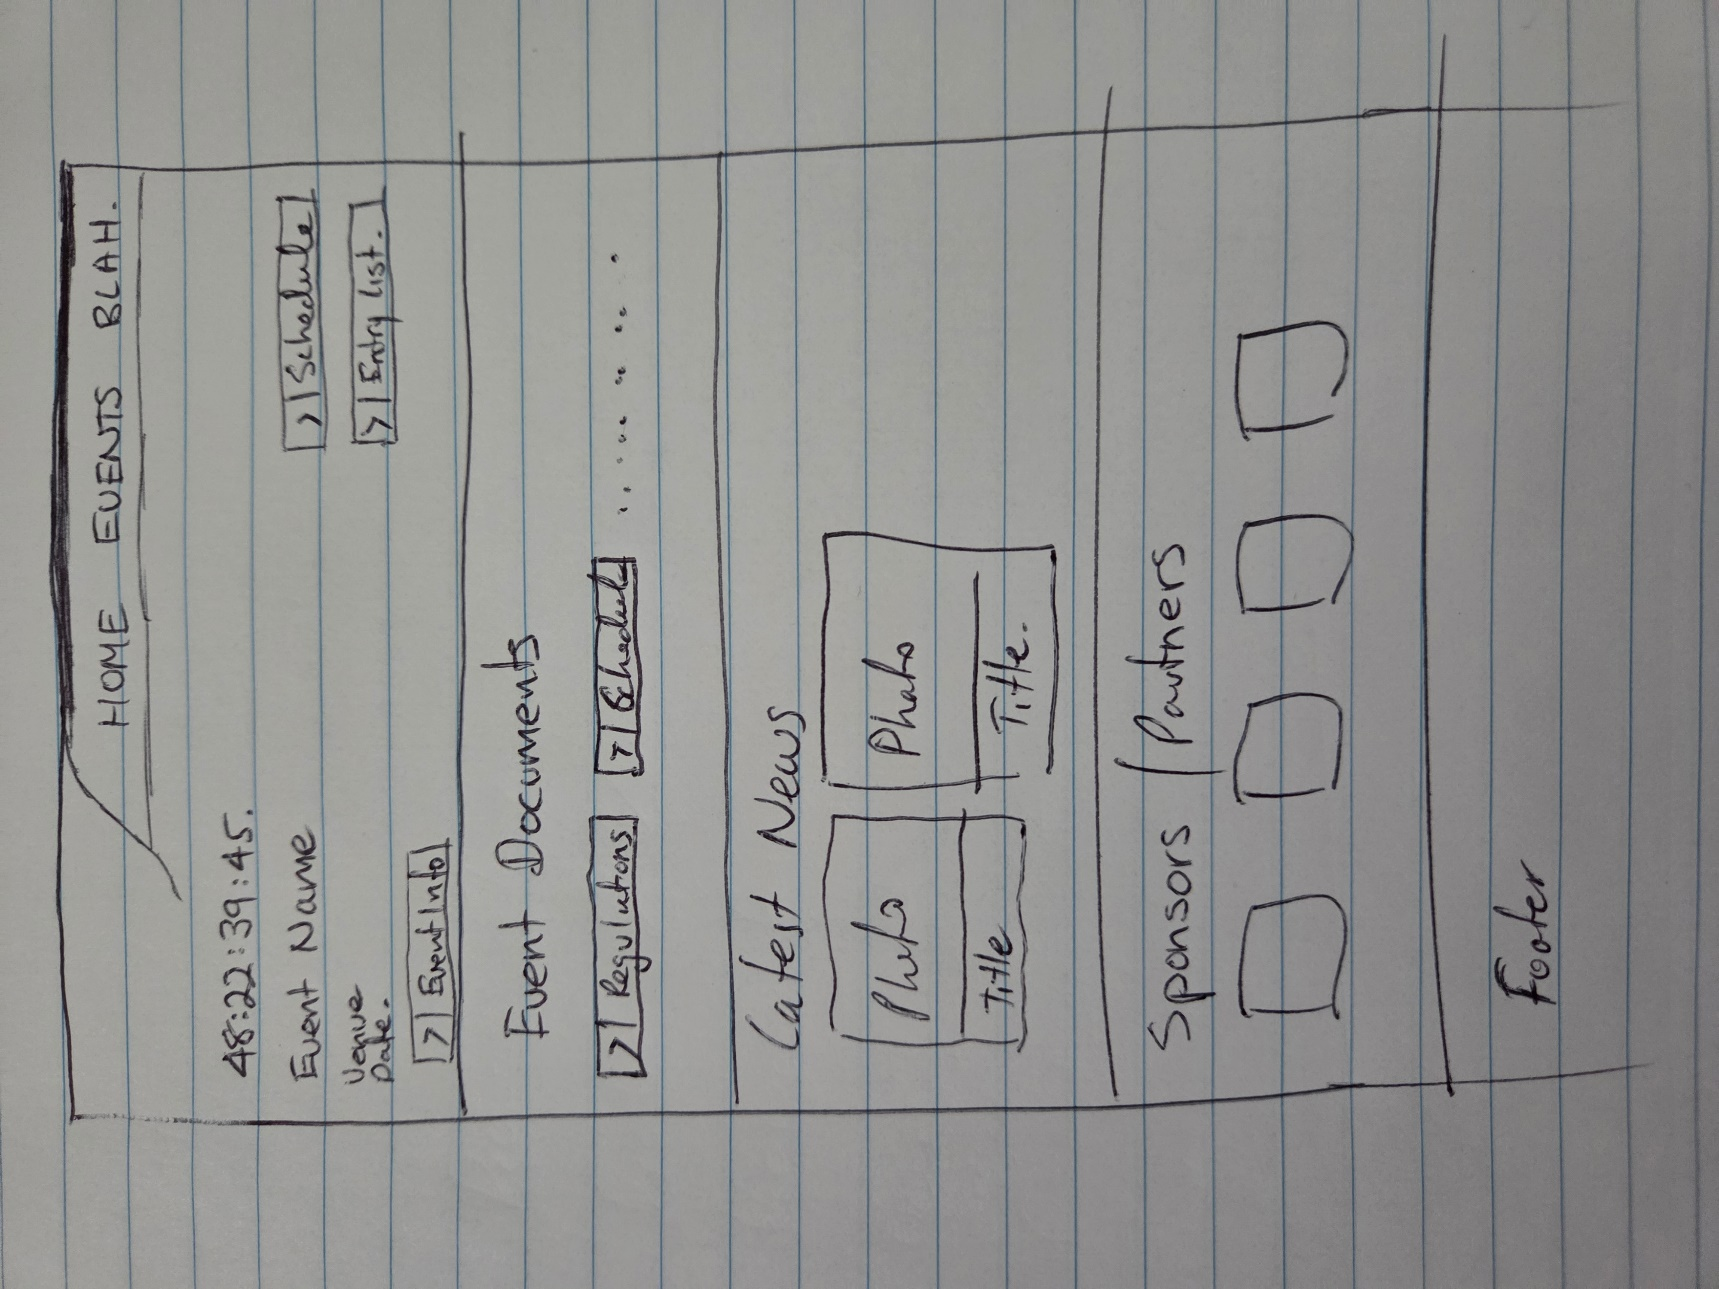 HOME EVENTS BLAH.
48:22:39:45.
Event Name
Venue
Date.
> Schedule
> Entry list.
> Event Info
Event Documents
> Regulations > Schedule . . . . . . .
Latest News
Photo Photo
Title Title.
Sponsors / Partners
Footer